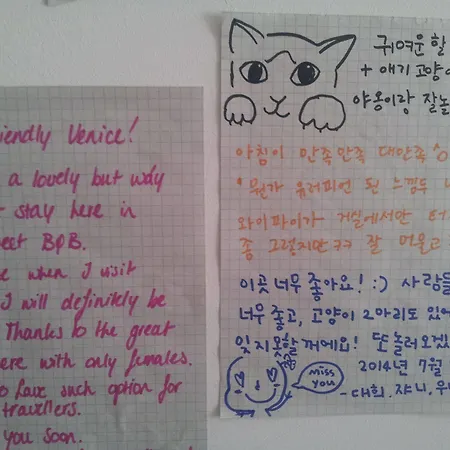 riendly Venice!
a lovely but way
stay here in
eet B&B.
e when I visit
I will definitely be
Thanks to the great
ere with only females.
o have such option for
travellers.
you soon.
귀여운 할
+ 애기 고양이
야옹이랑 잘놀
아침이 만족만족 대만족
뭔가 유러피언 된 느낌두
와이파이가 거실에서만 터
좀 그렇지만 ㅋㅋ 잘 머물고
이곳 너무 좋아요! :) 사람들
너무 좋고, 고양이 2마리도 있어
잊지 못할 꺼에요! 또 놀러오겠
miss you
2014년 7월
- 대희, 쟈니, 우